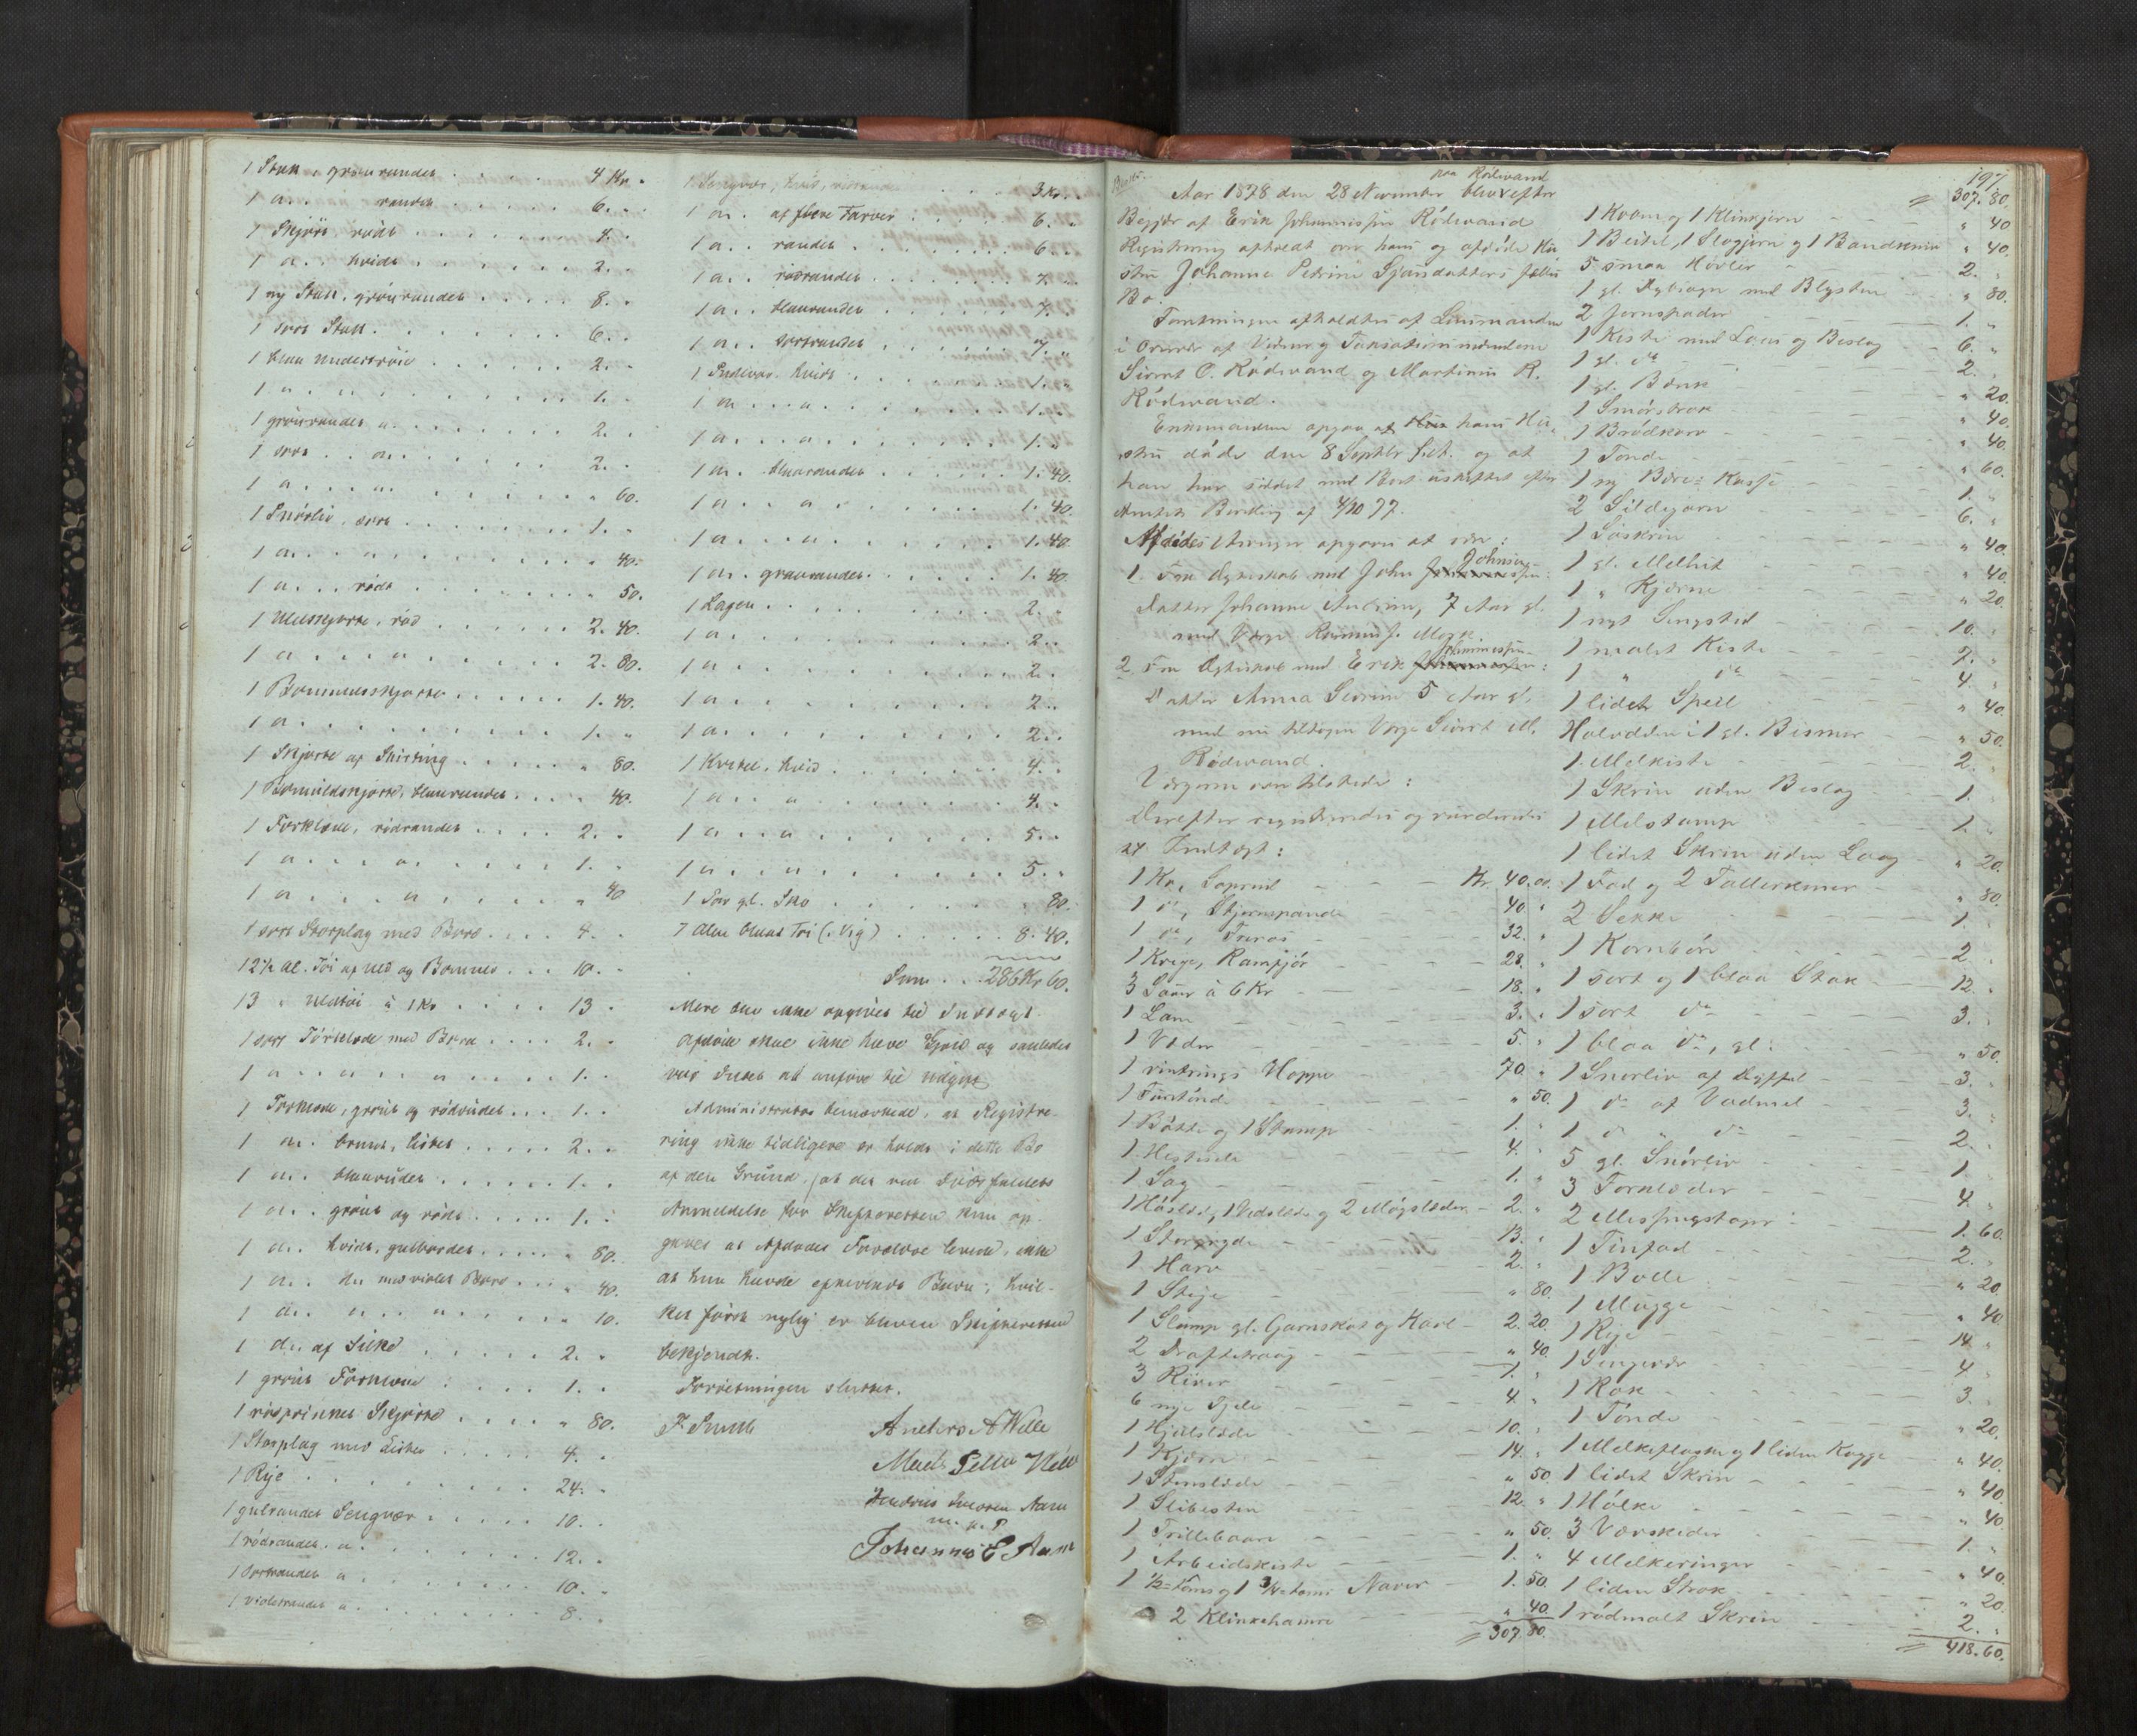 1 Stak, grönrandet . . . . . 4 Kr. "
1 do. randet . . . . . 6. "
1 Skjört, rödt . . . . . 4. "
1 do. hvidt . . . . . 2. "
1 ny Stak, grönrandet . . . . . 8. "
1 sort Stak . . . . . 6. "
1 blaa Undertröie . . . . . 2. "
1 do. . . . . . 1. "
1 grönrandet do. . . . . . 2. "
1 sort do. . . . . . 2. "
1 do. . . . . . " 60.
1 Snörliv, sort . . . . . 1. "
1 do. . . . . . " 40.
1 do. rödt . . . . . " 50.
1 Uldskjorte, röd . . . . . 2. 40.
1 do. . . . . . 2. 80.
1 Bommuldsskjorte . . . . . 1. 40.
1 do. . . . . . 1. "
1 Skjorte af Skirting . . . . . " 80.
1 Bomuldskjorte, blaarandet . . . . " 40.
1 Forklæde, rödrandet . . . . 2. "
1 do. . . . . . 1. "
1 do. . . . . . " 40
1 sort Storplag med Bord . . . . 4. "
12½ Al. Töi af uld og Bomuld . . . 10. "
13 " uldtöi à 1 Kr . . . . . 13 "
1 sort Törklæde med Bord . . . . 2. "
1 do. . . . . . 1. "
1 Torklæde, grönt og rödrudet . . . 1. "
1 do. brunt, lidet . . . . . 2. "
1 do. blaarudet . . . . . 1. "
1 do. grönt og rödt . . . . . 1. "
1 do. hvidt, gulbordet . . . . . " 80.
1 do. do. med violet Bord . . . " 40.
1 do. . . . . . " 10.
1 do. af Silke . . . . . 2. "
1 grönt Forklæde . . . . . 1. "
1 rosprikket Skjorte . . . . " 80.
1 Storplag med Lister . . . . . 4. "
1 Rye . . . . . 24. "
1 gulrandet Sengvær . . . . . 10. "
1 rödrandet do. . . . . . 12. "
1 sortrandet do. . . . . . 10. "
1 violetrandet do. . . . . . 8. "
1 Sengvær, hvid, . . . 3 Kr. "
1 do. af flere Farver . . . . 6. "
1 do. randet . . . . . 6. "
1 do. rödrandet . . . . . 7. "
1 do. blaarandet . . . . . 7. "
1 do. sortrandet . . . . . 7. "
1 Pudevar, hvidt . . . . . 1. "
1 do. . . . . . 1. "
1 do. . . . . . 1. "
1 do. blaarandet . . . . . 1. 40.
1 do. . . . . . 1. 40.
1 do. . . . . . 1. 40.
1 do. graarandet . . . . . 1. 40.
1 Lagen . . . . . 2. "
1 do. . . . . . 2. "
1 do. . . . . . 2. "
1 do. . . . . . 2. "
1 do. . . . . . 2. "
1 Kvitel, hvid . . . . . 4. "
1 do. . . . . . 4. "
1 do. . . . . . 5. "
1 do. . . . . . 5. "
1 Par gl. Sko . . . . . " 80.
7 Alen blaat Töi (i Væg) . . . . . 8. 40.
Sum . . 286 Kr 60.
Mere blev ikke opgivet til Indtægt.
Afdöde skal ikke have Gjæld og saaledes
var Intet at anföre til udgift.
Administrator bemærkede, at Registre-
ring ikke tidligere er holdt i dette Bo
af den Grund, at det ved Dödsfaldets
Anmeldelse for Skifteretten kun op-
gaves at Afdödes Forældre levede, ikke
at hun havde efterladt Barn; hvil-
ket först nylig er bleven Skifteretten
bekjendt.
Forretningen sluttet.
Anders A Welle
Mads Pedr
m. p. P.
Johannes E Aam
197
paa Rödevand
Aar 1878 den 28 November blev efter
Begjær af Erik Johannessen Rödevand
Registrering afholdt over hans og afdöde Hu
stru Johanne Petrine Sjursdatters fælles
Bo.
Forretningen afholdtes af Lensmanden
i Overvær af Vidner og Taxationsmændene
Sivert O. Rödevand og Martinus R.
Rödevand.
Enkemanden opgav at hans Hu-
stru döde den 8 Septbr f.A. og at
han har siddet med Boet uskiftet efter
Amtets Bevilling af 4/10 77.
Afdödes Arvinger opgaves at være:
1. Fra Ægteskab med John Johnsen:
Datter Johanne Andrine, 7 Aar gl.
med Værge Rasmus J. Mogk.
2. Fra Ægteskab med Erik Johannessen:
Datter Anna Severine 5 Aar gl.
med sin tiltagen Værge Sivert M.
Rödevand.
Værgerne var tilstede:
Derefter registreredes og vurderedes
til Indtægt:
1 Ko, Soprud - - - Kr. 40. 00.
1 do, Stjernspande - - 40. "
1 do, Furos - - 32. "
1 Kvige, Ramfjör - - 28. "
3 Sauer à 6 Kr - - 18. "
1 Lam - - 3. "
1 Væder - - 5. "
1 vintrings Hoppe - - 70. "
1 Tintönde - - " 50.
1 Bötte og 1 Stamp - - 1. "
1 Hestesele - - 4. "
1 Sag - - 1. "
1 Höslede, 1 Vedslede og 2 Mögslæder - 2. "
1 Storgryde - - 13. "
1 Harv - - 2. "
1 Stige - - " 80.
1 Slump gl. Garnskot og Kavl - 2. 20.
2 Drættetaug - - " 40.
3 River - - 1. "
6 nye Fjele - - 4. "
1 Hjulslede - - 10. "
1 Kjerre - - 14. "
1 Stenslede - - " 50
1 Slibesten - - 12. "
1 Trillebaare - - " 50.
1 Arbeidskiste - - 1. "
1 ½=toms og 1 ¾=toms Naver - 1. 50.
2 Klinkehamre - - " 40.
307. 80.
307. 80.
1 Kvam og 1 Klinkjern - - " 40
1 Beitel, 1 Slogjern og 1 Baandkniv " 40.
5 smaa Hövler - - 2. "
1 gl. med Blysten - " 80.
2 Jernspader - - 1. "
1 Kiste med Laas og Beslag - 6. "
1 gl. do - - 2. "
1 gl. Bænk - - " 20.
1 Smörstrok - - " 40.
1 Brödkorv - - " 40.
1 Tönde - - " 60.
1 ny Bære= Kasse - - 1. "
2 Sildegarn - - 6. "
1 Söskrin - - " 40.
1 gl. Melbut - - " 40.
1 " Kjerne - - " 20.
1 nyt Sengsted - - 10. "
1 malet Kiste - - 7. "
1 " do - - 4. "
1 lidet Speil - - " 40.
Halvdelen i 1 gl. Bismer - " 50.
1 Melkiste - - 2. "
1 Skrin uden Beslag - - 1. "
1 Melstamp - - 1. "
1 lidet Skrin uden Laag - " 20.
1 Fad og 2 Tallerkener - " 80.
2 Sekke - - 1. "
1 Kornbör - - 2. "
1 sort og 1 blaa Stak - 12. "
1 sort do - - 3. "
1 blaa do, gl. - - " 50.
1 Snorliv af Dyffel - 3. "
1 do af Vadmel - 3. "
1 do " do - - 2. "
5 gl. Snörliv - - 1. "
3 Forklæder - - 4. "
2 Messingstaper - - 1. 60.
1 Tinfad - - 2. "
1 Bolle - - " 20.
1 Mugge - - " 40.
1 Rye - - 14. "
1 Sengevær - - 4. "
1 Rok - - 3. "
1 Tönde - - " 20.
1 Melkeflaske og 1 liden Kagge " 40.
1 lidet Skrin - - " 40.
1 Hölke - - " 40.
3 Vævskeder - - 1. "
4 Melkeringer - - " 40.
1 liden Strok - - " 20.
1 rödmalt Skrin - - 2. "
418. 60.